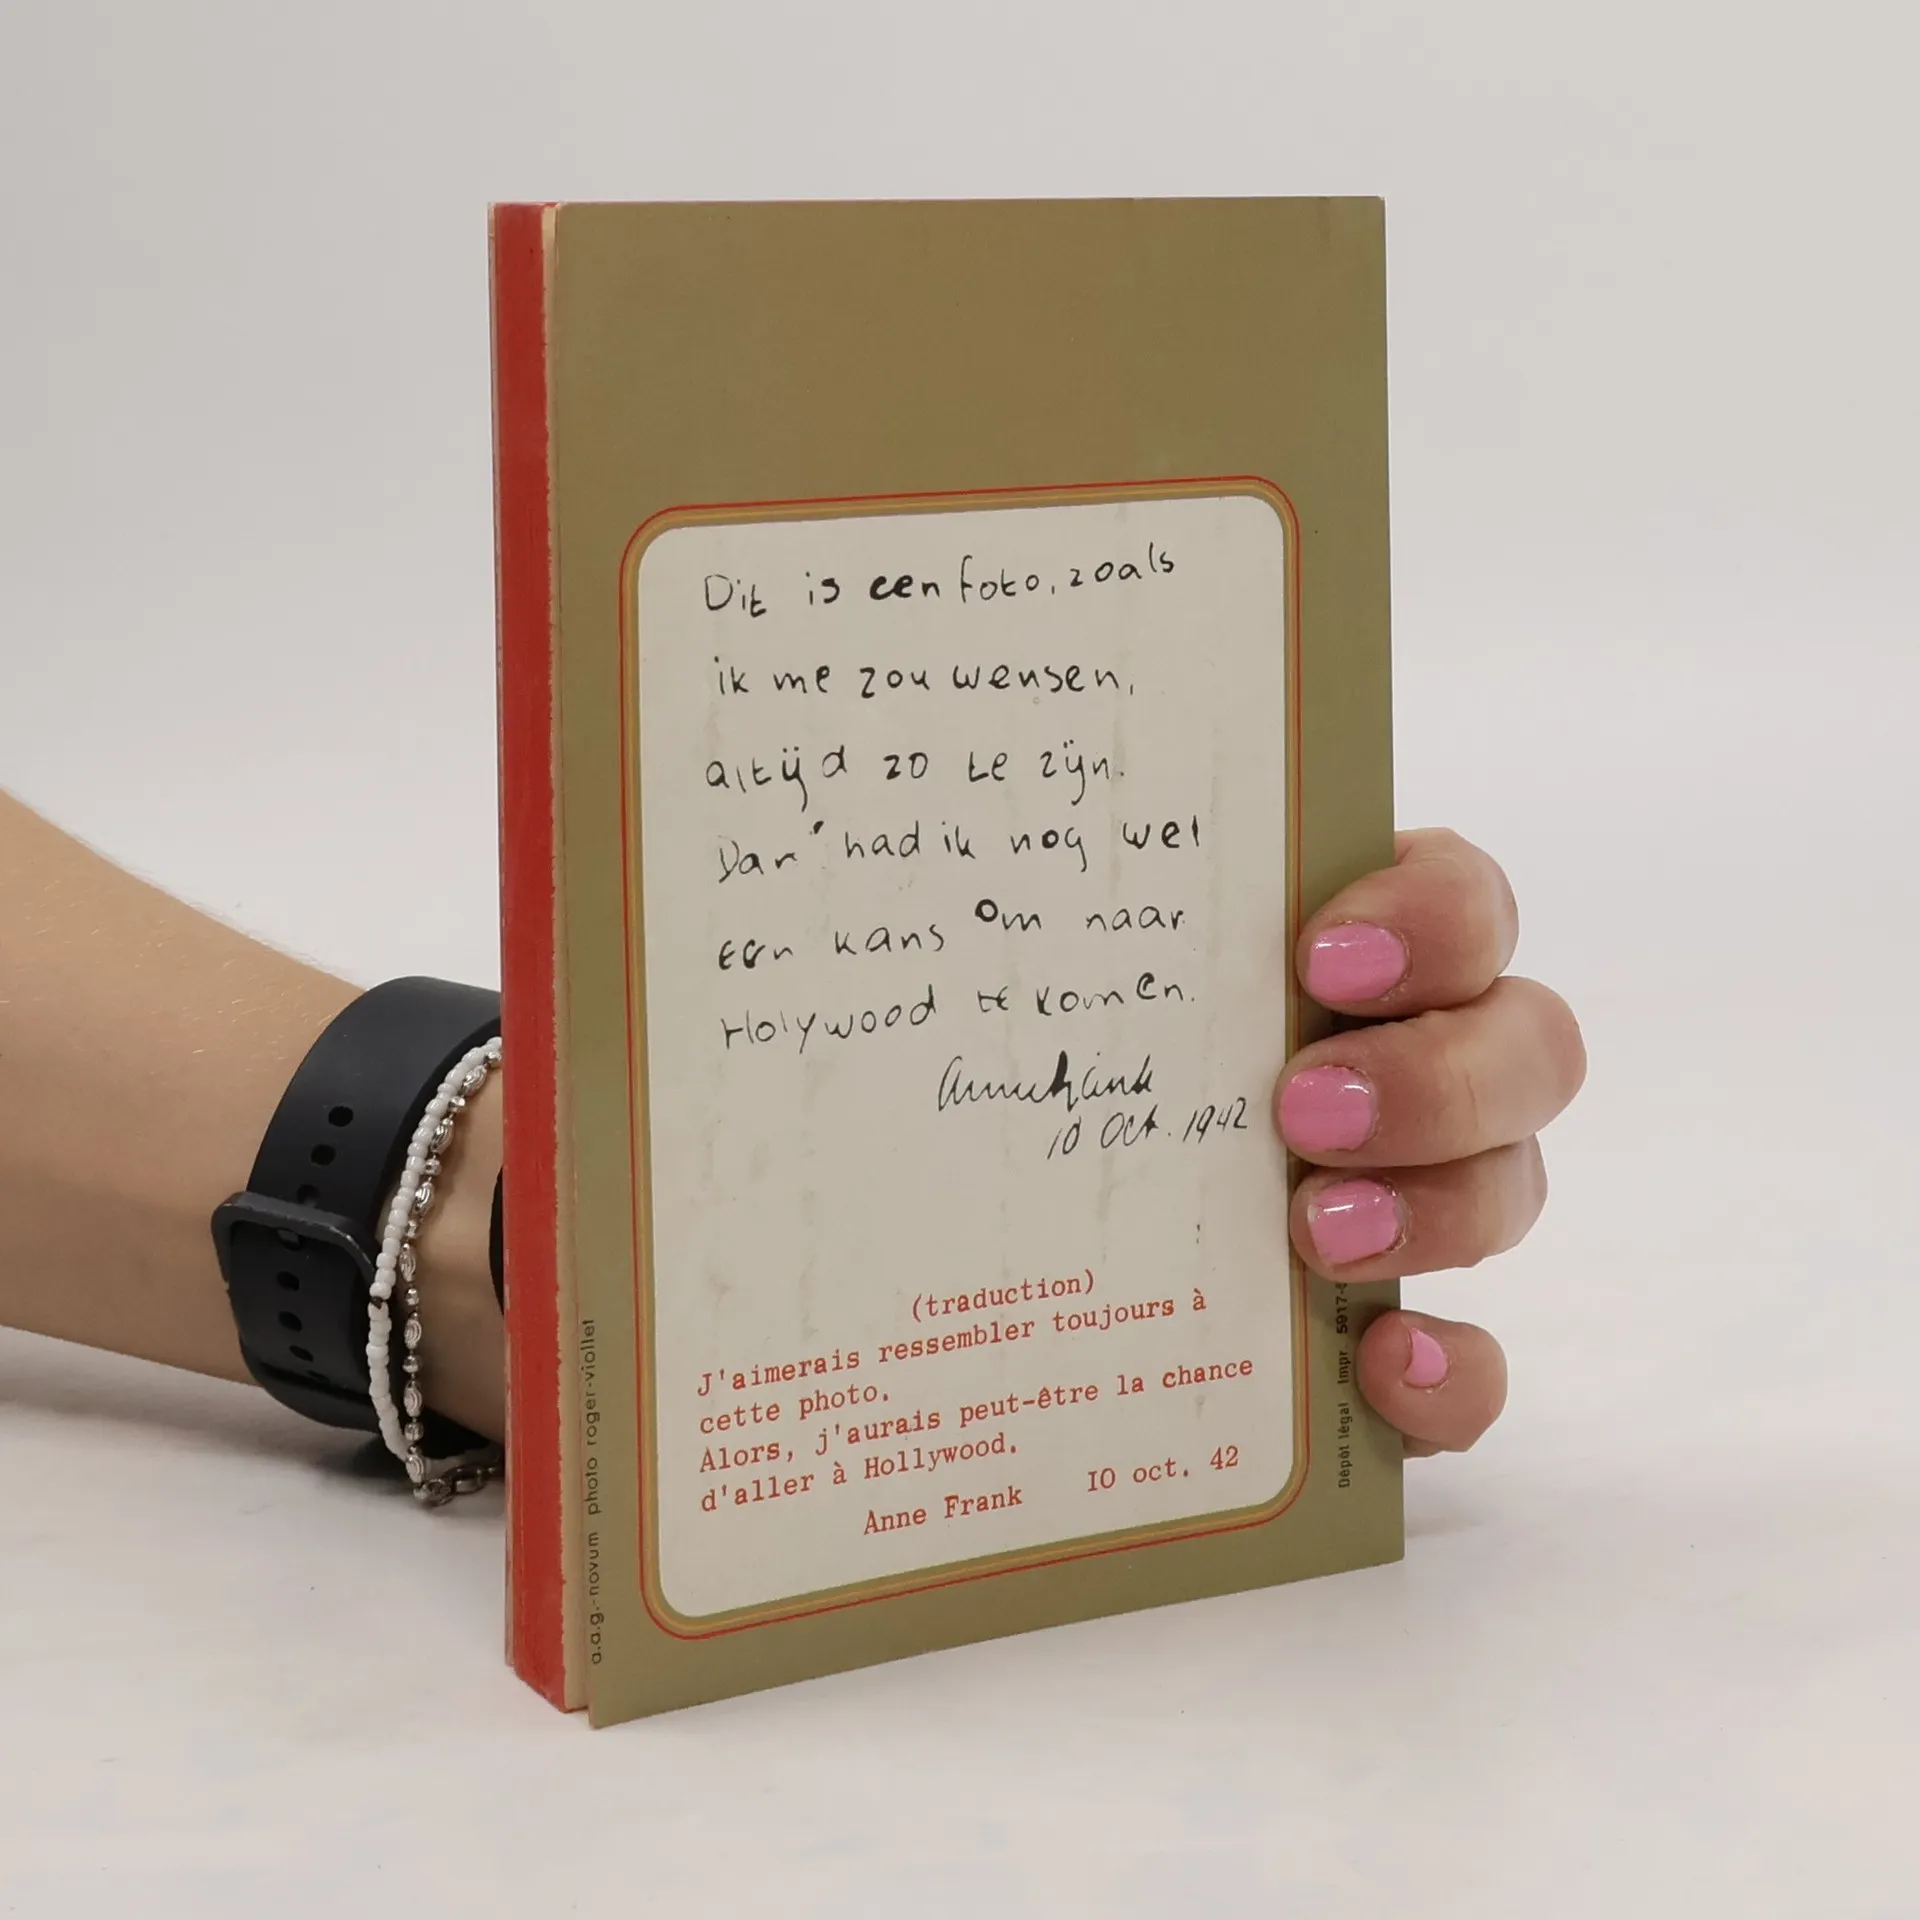 Dit is een foto, zoals
ik me zou wensen,
altijd zo te zijn.
Dan had ik nog wel
een kans om naar
Holywood te komen.
AnneFrank
10 Oct. 1942
(traduction)
J'aimerais ressembler toujours à
cette photo.
Alors, j'aurais peut-être la chance
d'aller à Hollywood.
Anne Frank IO oct. 42
a.a.g.-novum photo roger-viollet
Dépôt légal Impr. 5917-